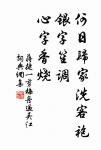 何日歸家洗客袍
銀字笙調
心字香燒
蔣捷一剪梅舟過吳江
詞典網集